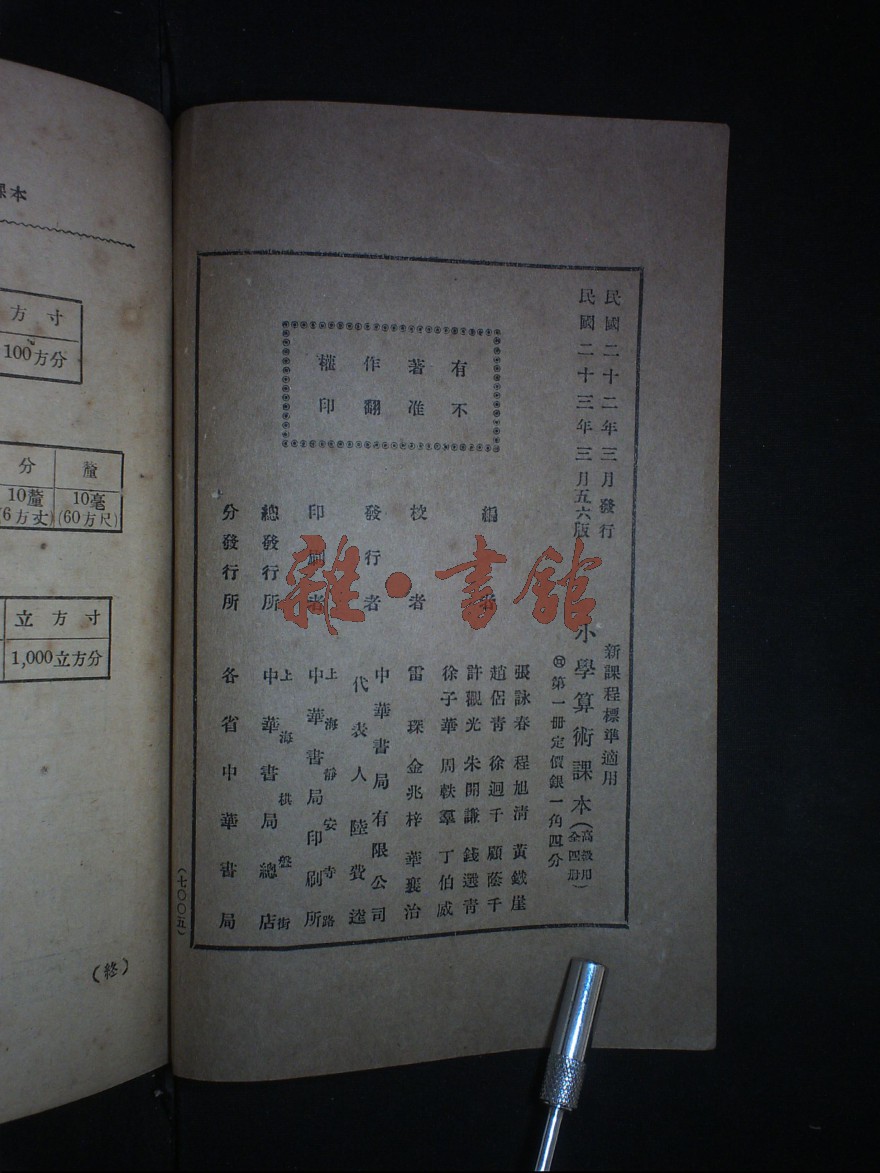 民國二十二年三月發行
民國二十三年三月五六版
新課程標準適用
小學算術課本(高級用全四册)
第一册定價銀一角四分
有著作權
不准翻印
編者
張詠春 程旭清 黃鐵崖
趙侶青 徐迥千 顧蔭千
許觀光 朱開謙 錢選青
徐子華 周軼羣 丁伯威
校者
雷琛 金兆梓 華襄治
發行者
中華書局有限公司
代表人 陸費逵
印刷者
上海靜安寺路
中華書局印刷所
總發行所
上海棋盤街
中華書局總店
分發行所
各省中華書局
(七〇〇五)
雜·書館
課本
方寸
100方分
分 釐
10釐 10毫
(6方丈) (60方尺)
立方寸
1,000立方分
(終)